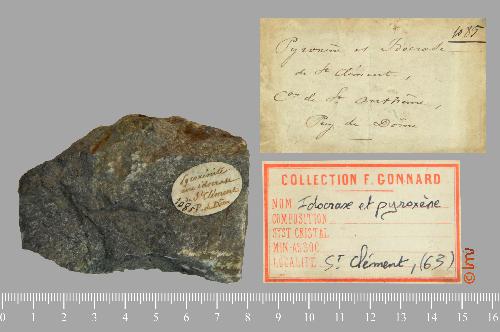 1085
Pyroxène et Idocrase
de St Clément,
Con de St Anthème,
Puy de Dôme
Pyroxénite
avec idocrase
de St Clément
1085 P. de Dôme
COLLECTION F. GONNARD
NOM Idocrase et pyroxène
COMPOSITION
SYST CRISTAL
MIN. ASSOC
LOCALITÉ St Clément, (63)
© lmv
0 1 2 3 4 5 6 7 8 9 10 11 12 13 14 15 16